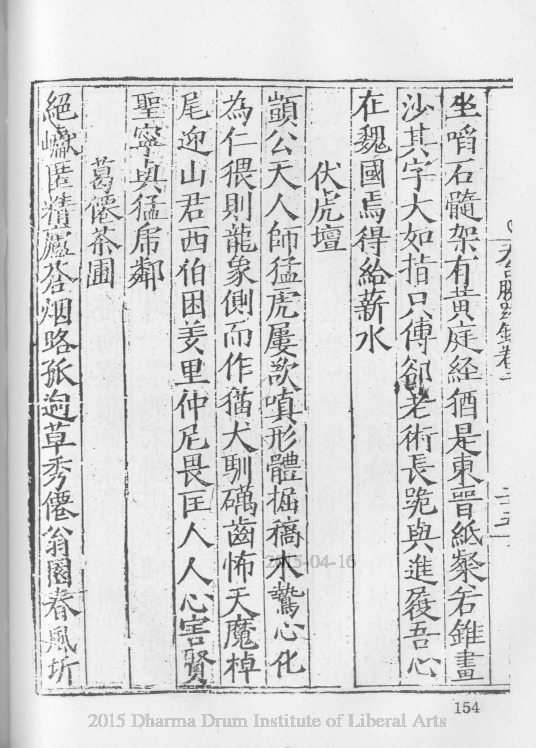 天台勝跡錄卷二
坐啗石髓架有黃庭經猶是東晉紙粲若錐畫
沙其字大如指只傳郤老術長跪與進履吾心
在魏國焉得給薪水
伏虎壇
顗公天人師猛虎屢欲嗔形體掘稿木鷙心化
為仁猥則龍象側而作猫犬馴礪齒怖天魔棹
尾迎山君西伯困羑里仲尼畏匡人人心害賢
聖寧與猛虎鄰
葛僊茶圃
絕巘匿精廬蒼烟路孤迥草秀僊翁園春風坼
2015-04-16
154
2015 Dharma Drum Institute of Liberal Arts